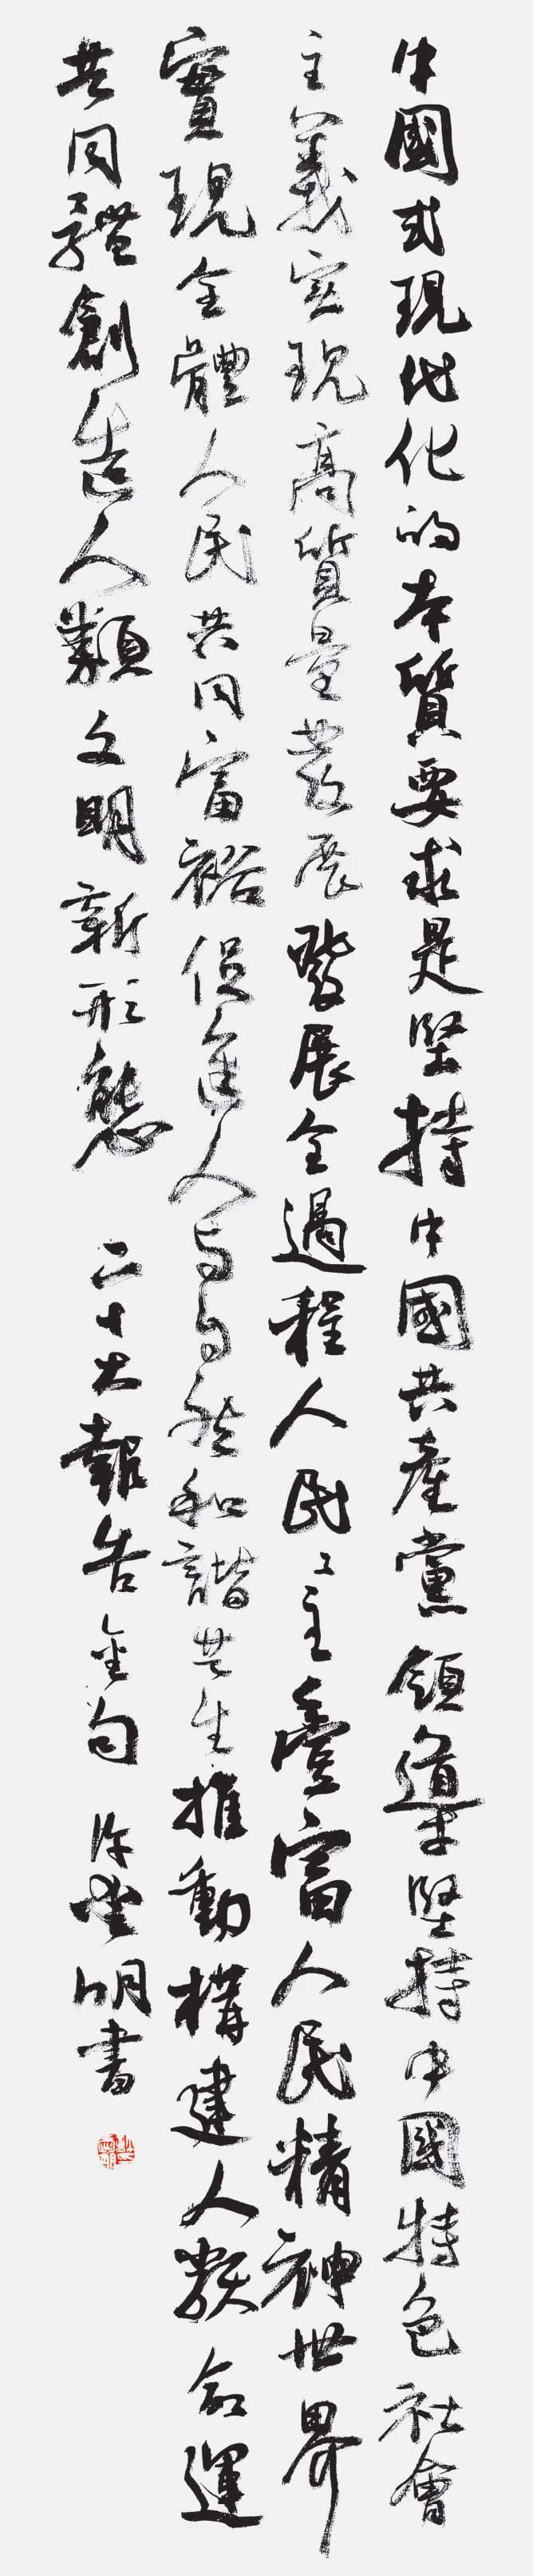 中國式現代化的本質要求是堅持中國共產黨領導堅持中國特色社會
主義實現高質量發展發展全過程人民々主豐富人民精神世界
實現全體人民共同富裕促進人與自然和諧共生推動構建人類命運
共同體創造人類文明新形態 二十大報告金句 明書